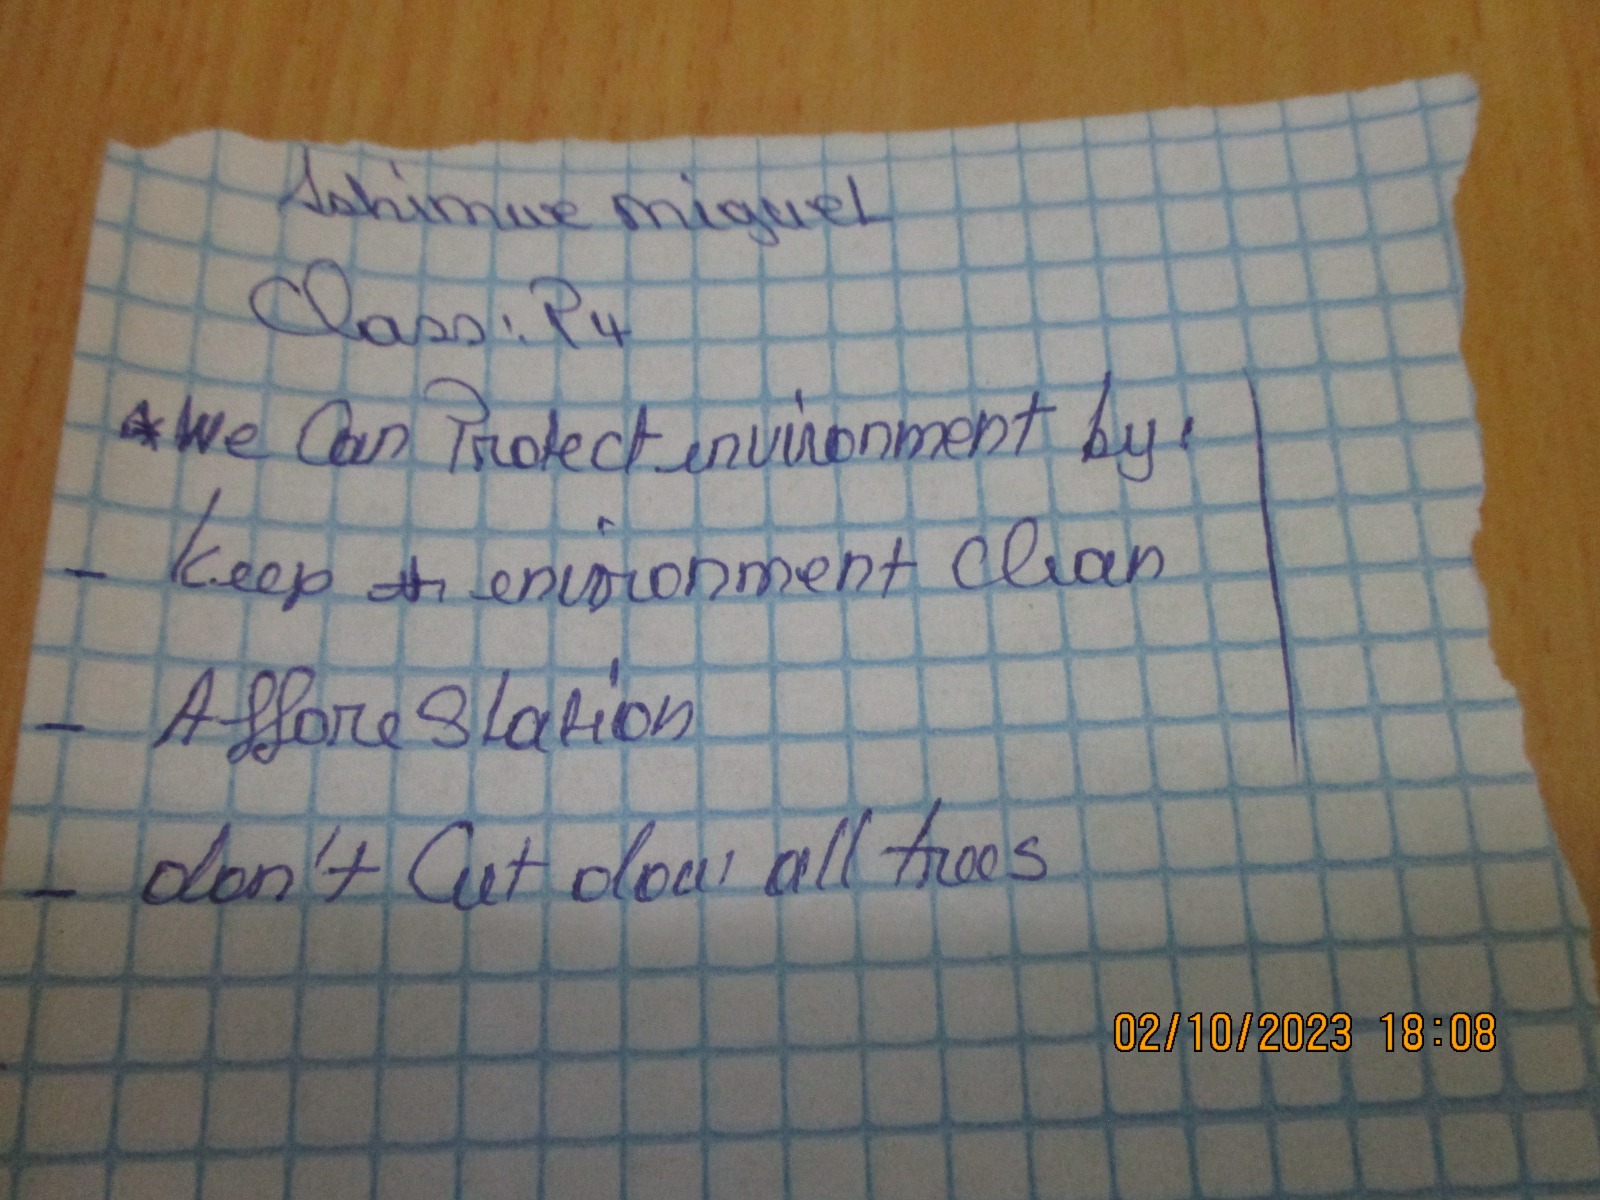 Ishimwe miguel
Class: P4
* We Can Protect environment by:
- keep environment clean
- Afforestation
- don't Cut dow all trees
02/10/2023 18:08